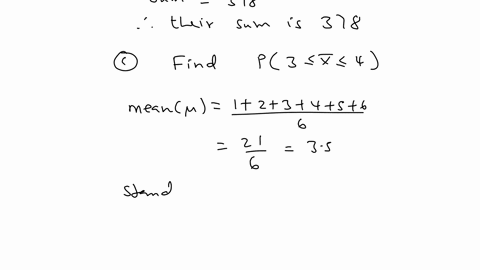 sum = 378
∴ their sum is 378
(c) Find P(3 ≤ x̄ ≤ 4)
mean(μ) = 1+2+3+4+5+6 / 6
= 21/6 = 3.5
stand